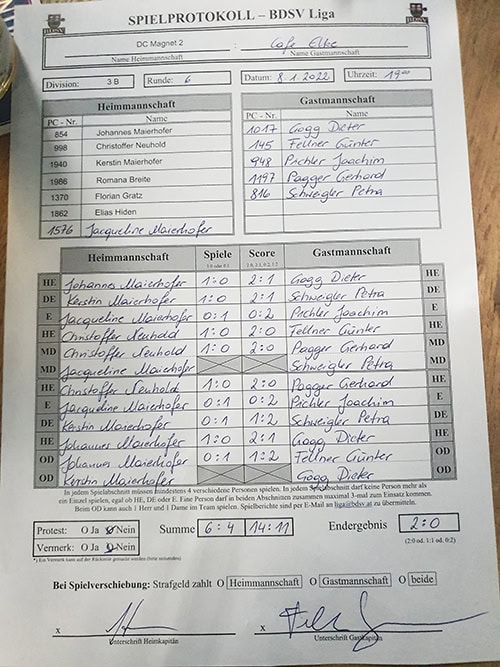 SPIELPROTOKOLL – BDSV Liga
BDSV
BDSV
DC Magnet 2 : Cafe Elke
Name Heimmannschaft Name Gastmannschaft
Division: 3 B Runde: 6 Datum: 8.1.2022 Uhrzeit: 19⁰⁰
Heimmannschaft Gastmannschaft
PC - Nr. Name PC - Nr. Name
854 Johannes Maierhofer 1017 Gogg Dieter
998 Christoffer Neuhold 145 Fellner Günter
1940 Kerstin Maierhofer 948 Pichler Joachim
1986 Romana Breite 1197 Pagger Gerhard
1370 Florian Gratz 816 Schweigler Petra
1862 Elias Hiden
1576 Jacqueline Maierhofer
Heimmannschaft Spiele Score Gastmannschaft
1:0 oder 0:1 2:0, 2:1, 0:2, 1:2
HE Johannes Maierhofer 1:0 2:1 Gogg Dieter HE
DE Kerstin Maierhofer 1:0 2:1 Schweigler Petra DE
E Jacqueline Maierhofer 0:1 0:2 Pichler Joachim E
HE Christoffer Neuhold 1:0 2:0 Fellner Günter HE
MD Christoffer Neuhold 1:0 2:0 Pagger Gerhard MD
MD Jacqueline Maierhofer Schweigler Petra MD
HE Christoffer Neuhold 1:0 2:0 Pagger Gerhard HE
E Jacqueline Maierhofer 0:1 0:2 Pichler Joachim E
DE Kerstin Maierhofer 0:1 1:2 Schweigler Petra DE
HE Johannes Maierhofer 1:0 2:1 Gogg Dieter HE
OD Johannes Maierhofer 0:1 1:2 Fellner Günter OD
OD Kerstin Maierhofer Gogg Dieter OD
In jedem Spielabschnitt müssen mindestens 4 verschiedene Personen spielen. In jedem Spielabschnitt darf keine Person mehr als
ein Einzel spielen, egal ob HE, DE oder E. Eine Person darf in beiden Abschnitten zusammen maximal 3-mal zum Einsatz kommen.
Beim OD kann auch 1 Herr und 1 Dame im Team spielen. Spielberichte sind per E-Mail an liga@bdsv.at zu übermitteln.
Protest: O Ja O Nein Summe 6:4 14:11 Endergebnis 2:0
Vermerk: O Ja O Nein (2:0 od. 1:1 od. 0:2)
Bei Spielverschiebung: Strafgeld zahlt O Heimmannschaft O Gastmannschaft O beide
x x
Unterschrift Heimkapitän Unterschrift Gastkapitän